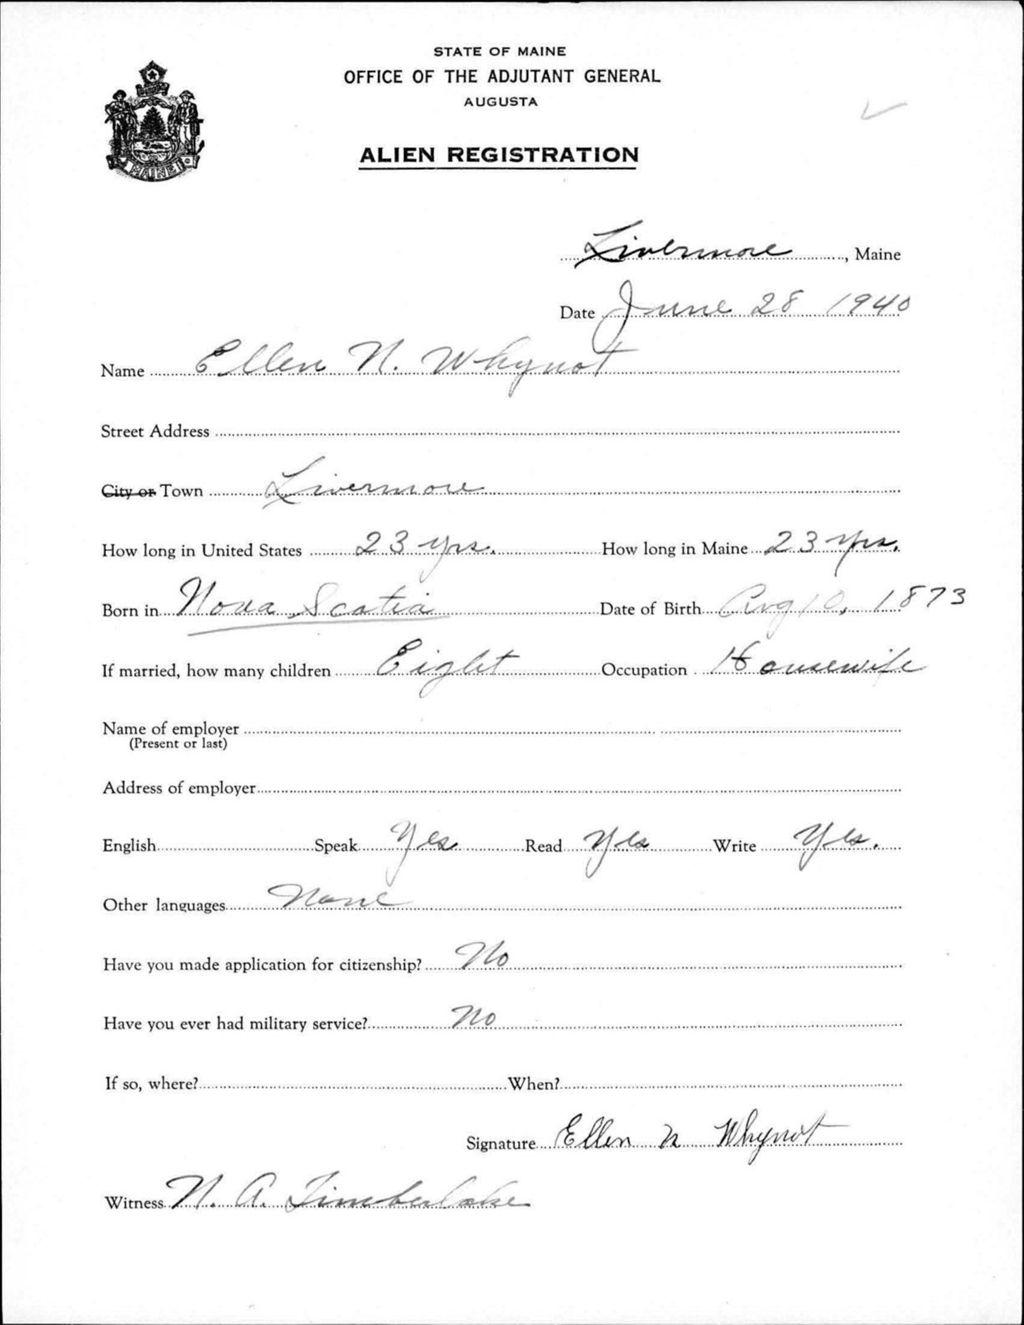 STATE OF MAINE
OFFICE OF THE ADJUTANT GENERAL
AUGUSTA
ALIEN REGISTRATION
MAINE
Livermore, Maine
Date June 28 1940
Name Ellen N. Whynot
Street Address
City or Town Livermore
How long in United States 23 yrs. How long in Maine 23 yrs.
Born in Nova Scotia Date of Birth Aug 10, 1873
If married, how many children Eight Occupation Housewife
Name of employer
(Present or last)
Address of employer
English Speak Yes Read Yes Write Yes.
Other languages None
Have you made application for citizenship? No
Have you ever had military service? No
If so, where? When?
Signature Ellen N Whynot
Witness N. A. Timberlake